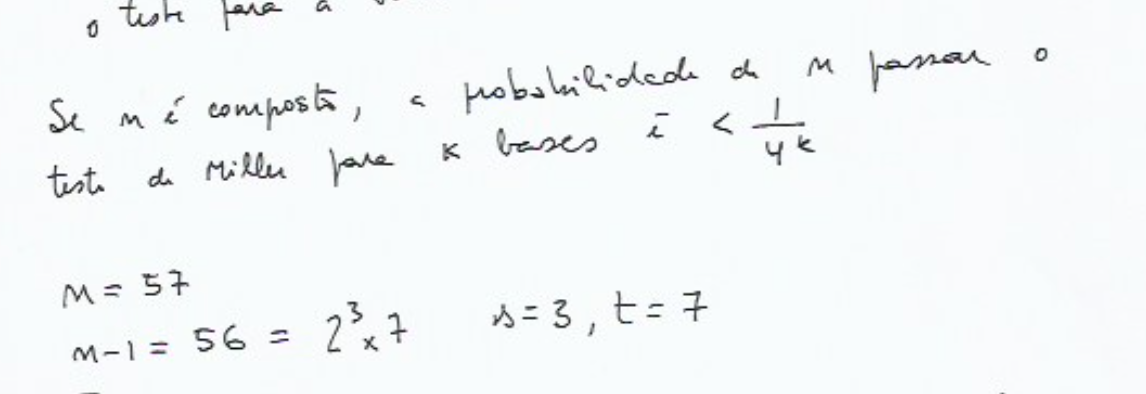 o teste para a
Se n é composto, a probabilidade de n passar o
teste de Miller para k bases é < 1/4^k
n = 57
n-1 = 56 = 2^3 x 7 s = 3, t = 7